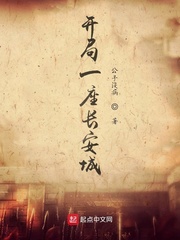 开局一座长安城
公子浅病 ◎ 著
起点中文网